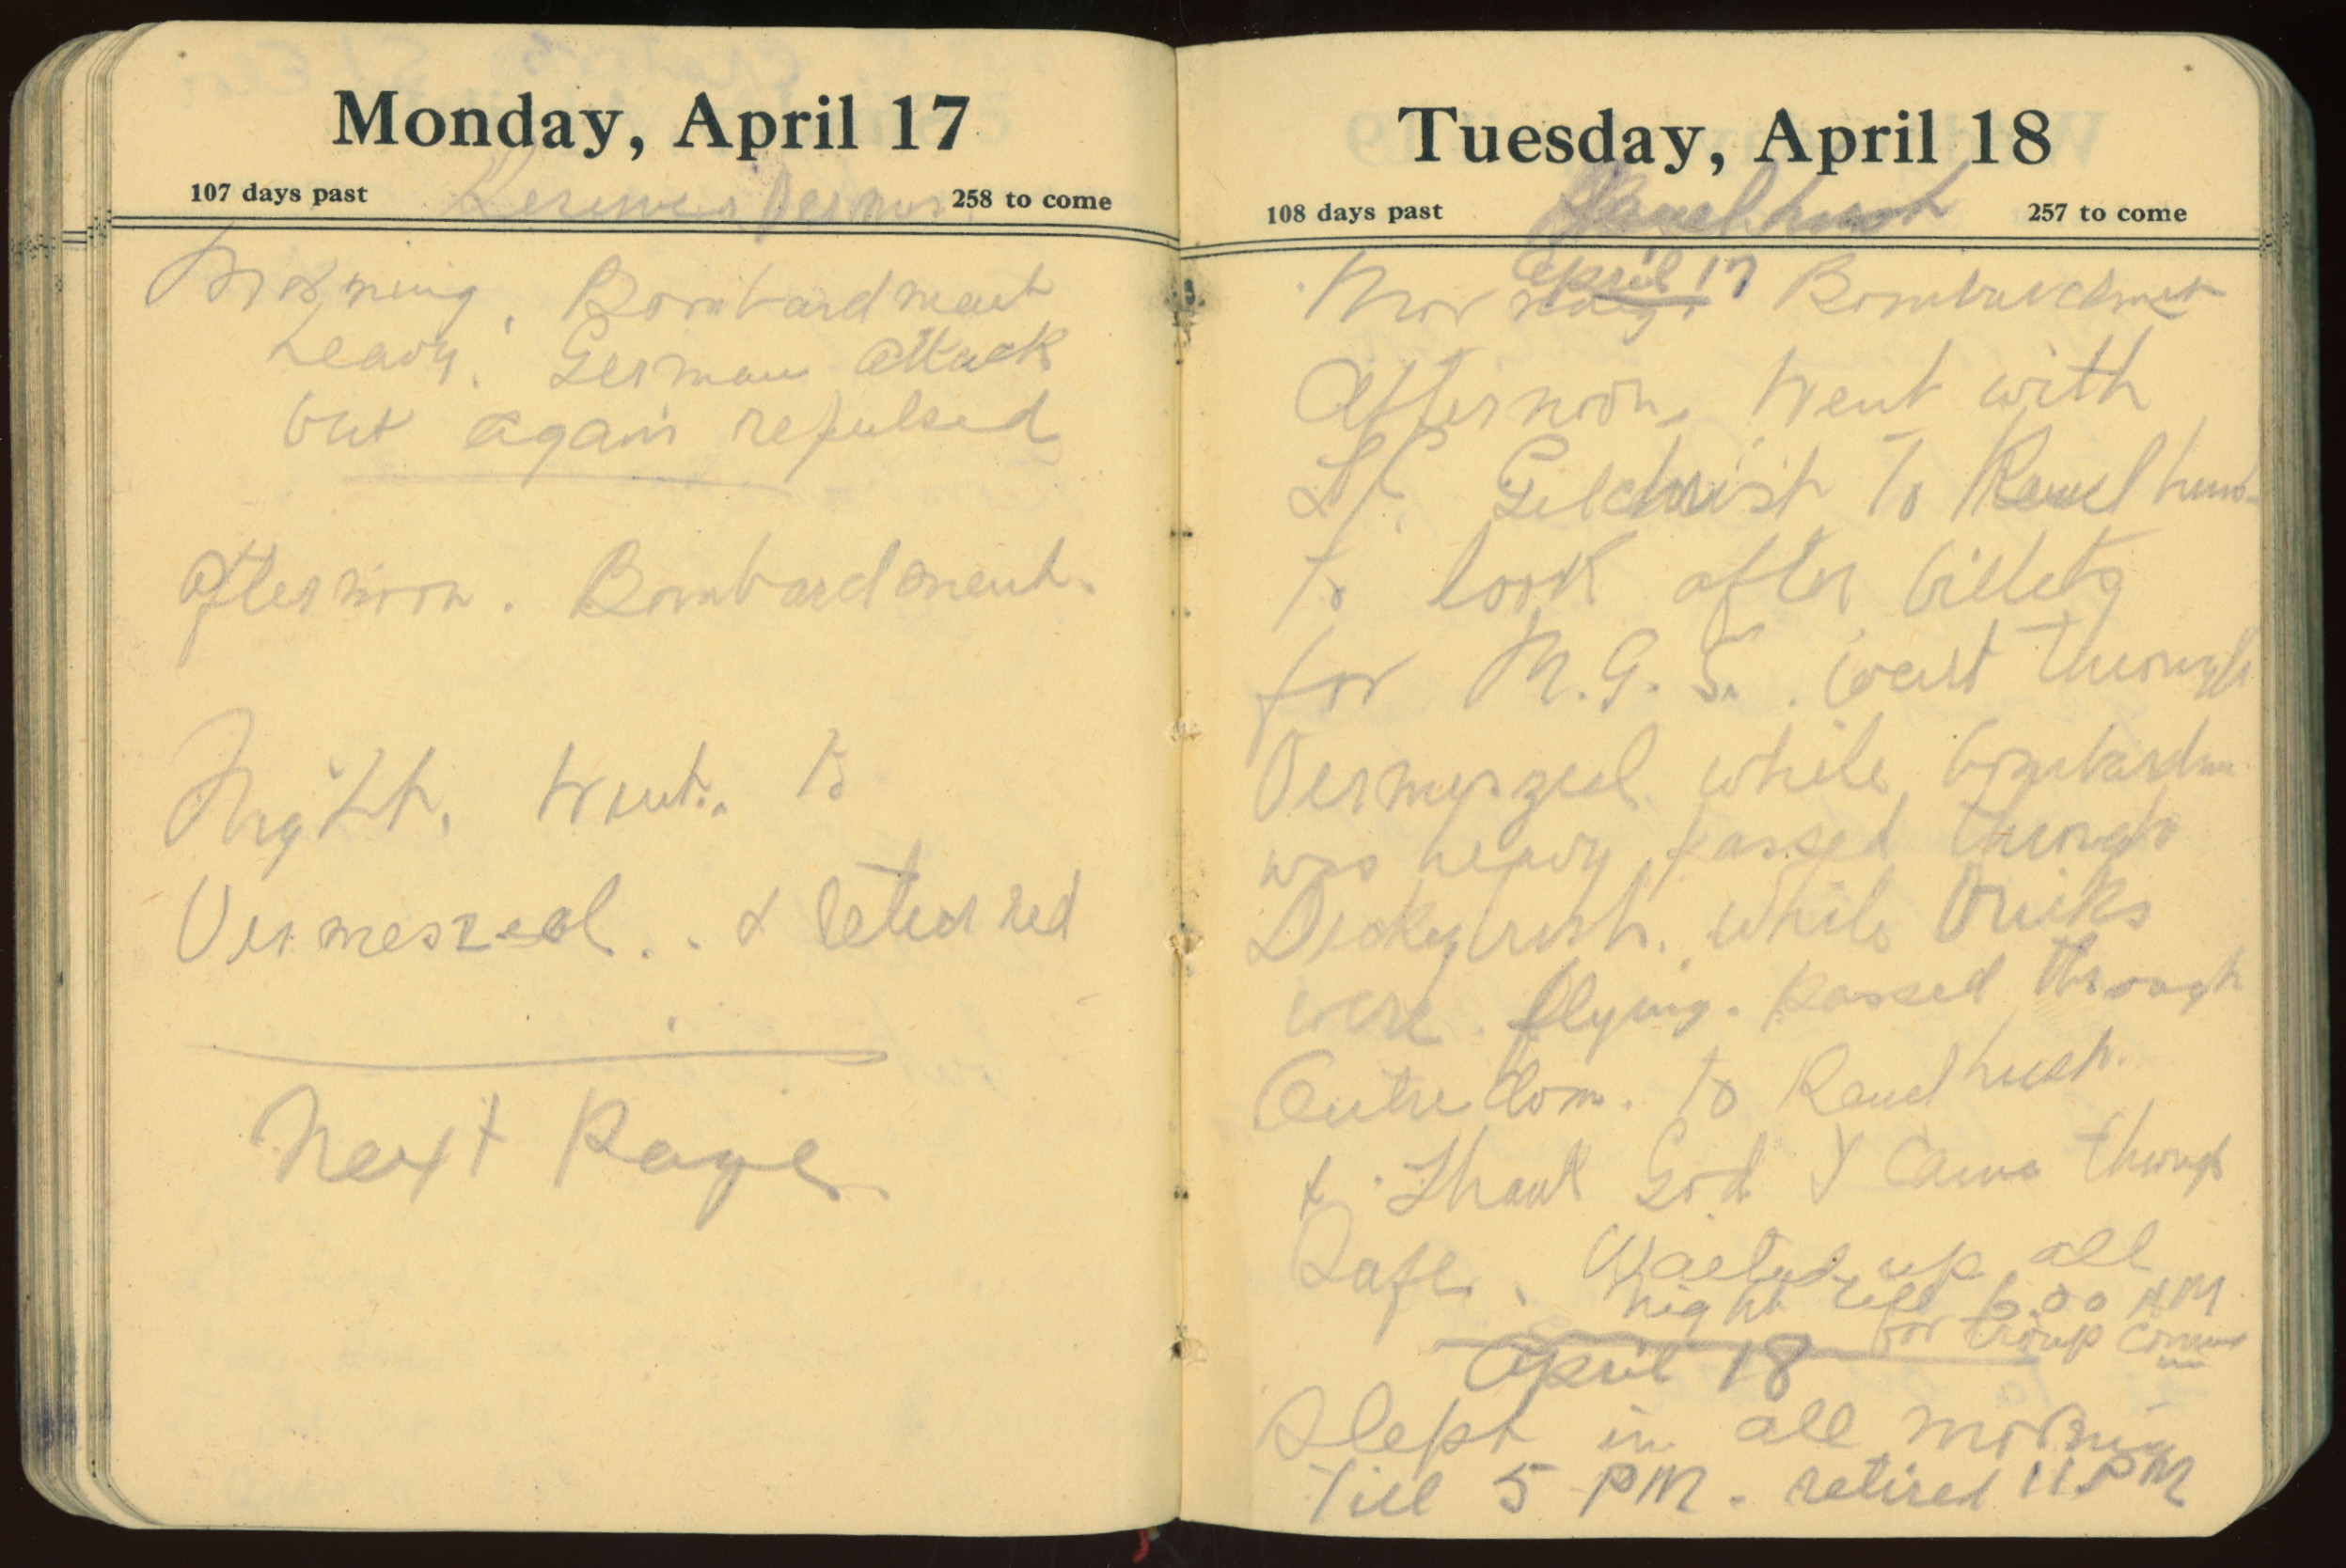 Monday, April 17
107 days past
258 to come
Morning, Bombardment
heavy. German attack
but again repulsed
afternoon. Bombardment.
Night. Went. to
Vermeszeel.. &
Next Page
Tuesday, April 18
108 days past
257 to come
April 17
Morning. Bombardment
Afternoon. Went with
Lt. Gilchrist To
To look after billets
for M.G.S. went through
Vermyszeel while bombardm
was heavy passed through
Dickybush. while bricks
were. flying. passed through
Outredom. to
& Thank God I came through
Safe. Waited up all
night till 6.00 AM
for troup coming
in
April 18
Slept in all morning
Till 5 PM. retired 11 PM